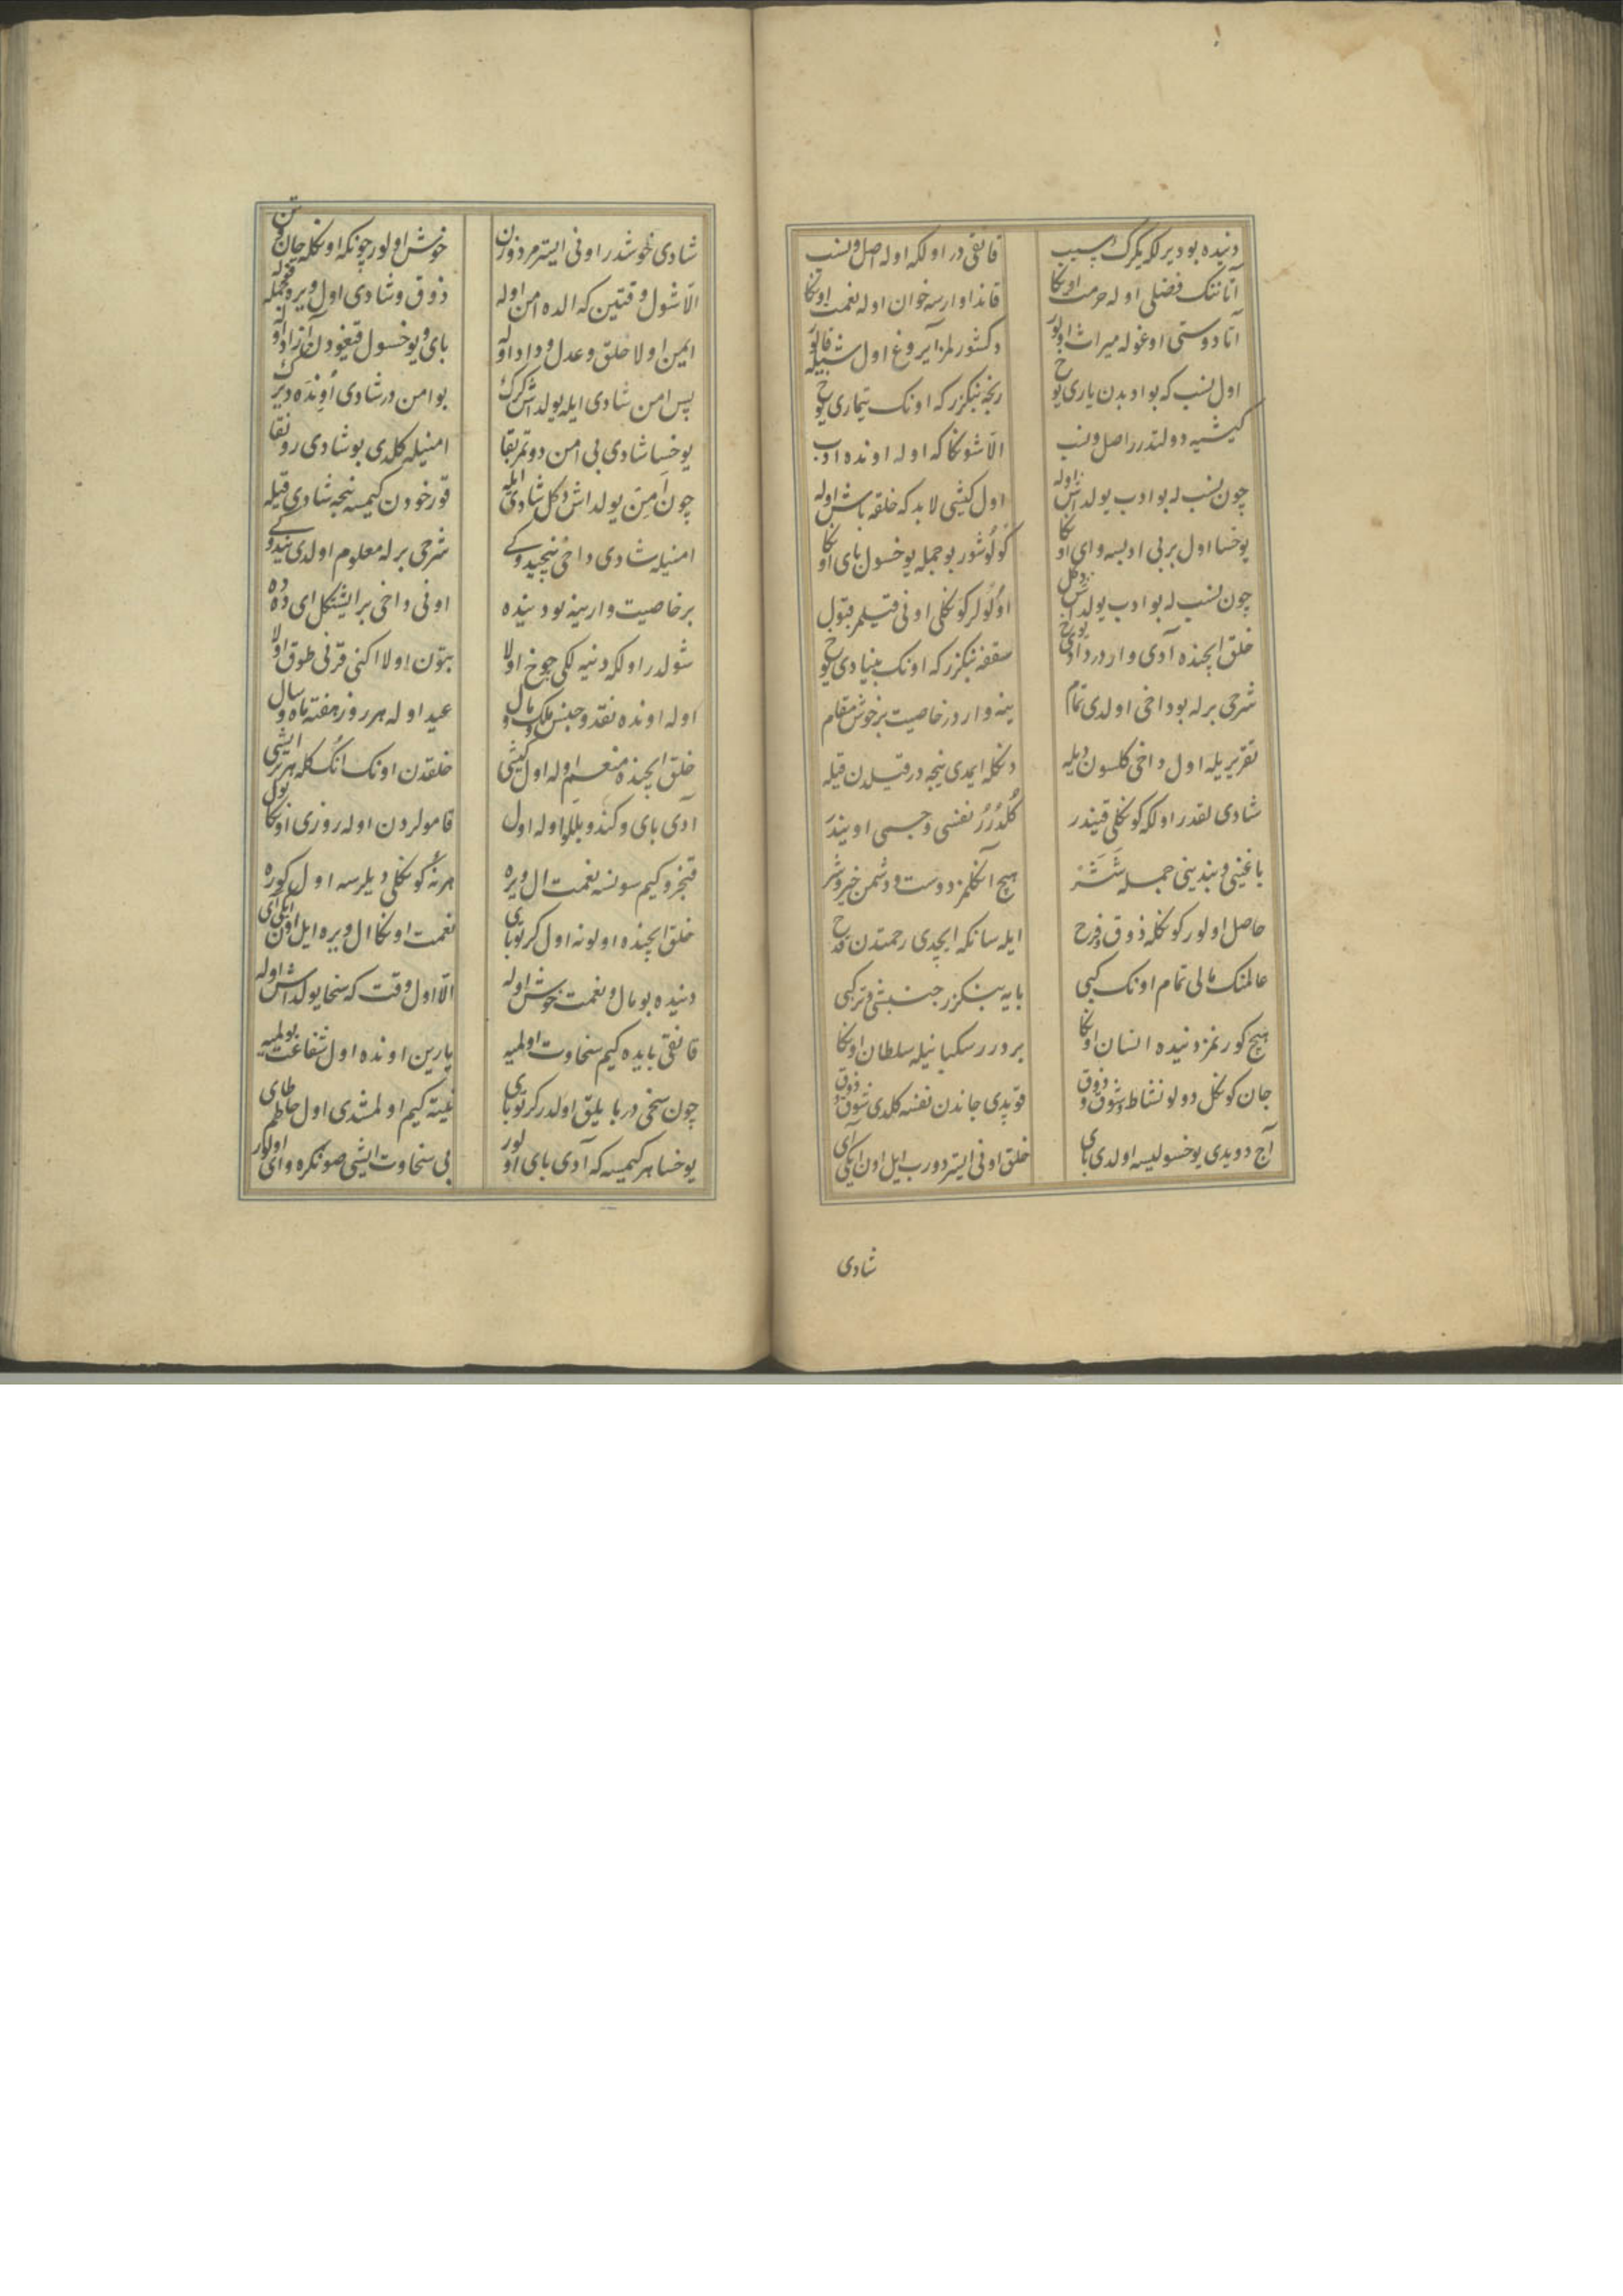 دنیده بودیرلکه یکرک سبب قانقی در اولکه اوله اصل و نسب
آتاننک فضلی اوله حرمت اونکا قاندا وارسه خوان اوله نعمت اونکا
آتا دوستی اوغوله میراث اولور دکشورلمز آیروغ اول
اول نسب که بو ادبدن یاری یوخ رنجه بنکزر که اونک تیماری یوخ
کیشیه دولتدر اصل و نسب الا شونکا که اوله اونده ادب
چون نسب له بو ادب یولداش اوله اول کیشی لابد که خلقه باش اوله
یوخسا اول بر بی ادبسه وای اونکا کولوشور بو جمله یوخسول بای اونکا
چون نسب له بو ادب یولداش دکل اوکولر کونکلی اونی قیلمز قبول
خلق ایچنده آدی واردر دادی یوخ سقفه بنکزر که اونک بنیادی یوخ
شرحی برله بو داخی اولدی تمام ینه واردر خاصیت بر خوش مقام
تقریریله اول داخی کلسون دیله دنکله ایمدی نیجه در قیلدن قیله
شادی لقدر اولکه کونکلی قیندر کلدرر نفسی و جسمی اویندر
باغینی و بندینی جمله ششر هیچ آنکلمز دوست و دشمن خیر و شر
حاصل اولور کونکله ذوق و فرح ایله سانکه ایچدی رحمتدن قدح
عالمنک مالی تمام اونک کبی بایه بنکزر جنبشی و ترکبی
هیچ کورنمز دنیده انسان اونکا بردرر سکبانیله سلطان اونکا
جان کونکل دولو نشاط و شوق و ذوق قوپدی جاندن نفسه کلدی شوق و ذوق
آج دویدی یوخسولیسه اولدی بای خلق اونی ایستر دورب ایل اون ایکی آی
شادی
شادی خوشدر اونی ایستر مرد و زن خوش اولور چونکه اونکله جان و تن
الا شول وقتین که الده امن اوله ذوق و شادی اول ویرر
ایمین اولا خلق و عدل و داد اوله بای و یوخسول قیغودن آزاد اوله
پس امن شادی ایله یولداش کرک بو امن در شادی اونده دیرک
یوخسا شادی بی امن دوتمز بقا امنیله کلدی بو شادی رونقا
چون امن یولداش دکل شادی ایله قورخودن کیمسه نیجه شادی قیله
امنیله شادی داخی نیجیدوکی شرحی برله معلوم اولدی نیدوکی
بر خاصیت وار ینه بو دنیده اونی داخی بر ایشتکل ای دده
شولدر اولکه دنیه لکی چوخ اولا بتون اولا اکنی قرنی طوق اولا
اوله اونده نقد و جنس ملک و مال عید اوله هر روز هفته ماه و سال
خلق ایچنده منعم اوله اول کیشی خلقدن اونک اککله هر بر ایشی
آدی بای و کندو بللو اوله اول قامولردن اوله روزی اونکا بول
قنجرو کیم سونسه نعمت ال ویره هر نه کونکلی دیلرسه اول کوره
خلق ایچنده اولونه اول کرتو بای نعمت اونکا ال ویره ایل اون ایکی آی
دنیده بو مال و نعمت خوش اوله الا اول وقت که سخا یولداش اوله
قانقی بایده کیم سخاوت اولمیه یارین اونده اول شفاعت بولمیه
چون سخی در بایلیق اولدر کرتو بای نیته کیم اولمشدی اول حاطم طای
یوخسا هر کیمسه که آدی بای اولور بی سخاوت ایشی صونکره وای اولور